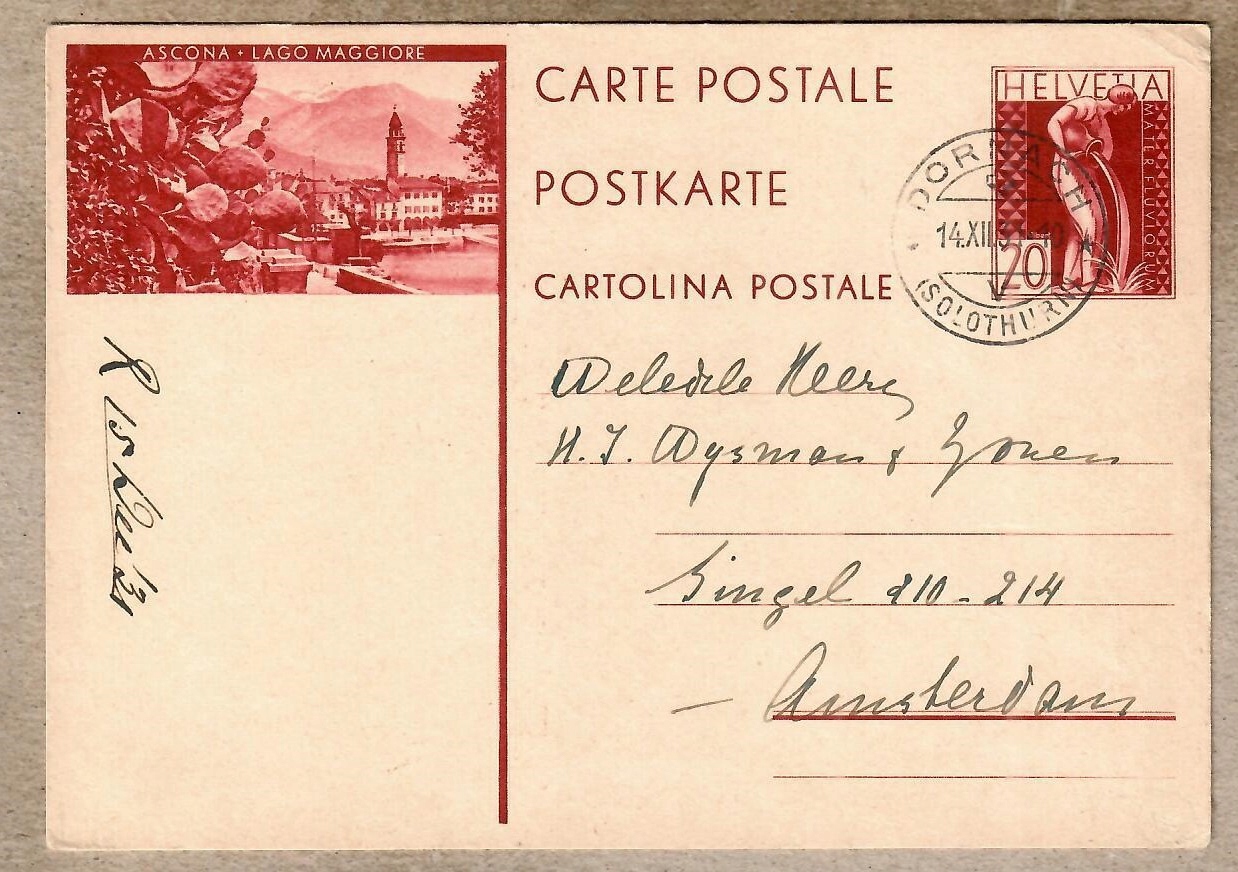 ASCONA • LAGO MAGGIORE
CARTE POSTALE
POSTKARTE
CARTOLINA POSTALE
HELVETIA
MATER FLUVIORUM
20
DORNACH
14.XII.31-10
(SOLOTHURN)
Weledele Heeren
H. J. Wysman & Zonen
Singel 210-214
- Amsterdam
R 15 Dec 31